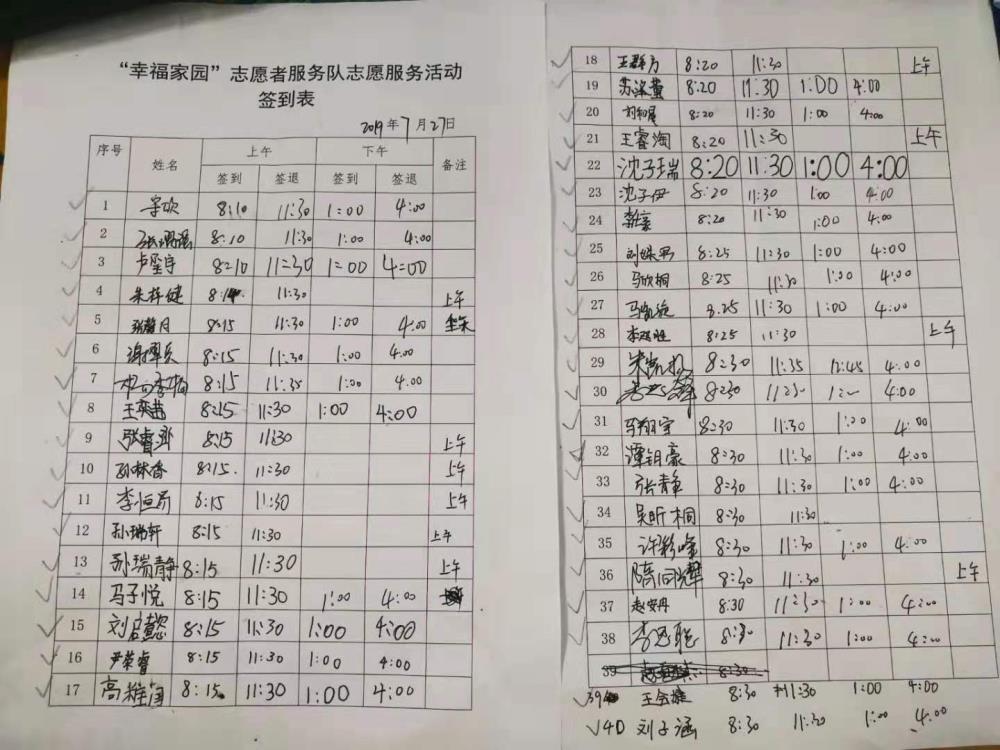 “幸福家园”志愿者服务队志愿服务活动
签到表
2019年7月27日
序号 姓名 上午 下午 备注
签到 签退 签到 签退
1 8:10 11:30 1:00 4:00
2 8:10 11:30 1:00 4:00
3 卢莹宇 8:10 11:30 1:00 4:00
4 朱梓健 11:30 上午
5 8:15 11:30 1:00 4:00
6 8:15 11:30 1:00 4:00
7 8:15 11:35 1:00 4:00
8 王奕茜 8:15 11:30 1:00 4:00
9 8:15 11:30 上午
10 孙林香 8:15 11:30 上午
11 李恒 8:15 11:30 上午
12 孙瑞轩 8:15 11:30 上午
13 孙瑞静 8:15 11:30 上午
14 马子悦 8:15 11:30 1:00 4:00
15 刘启懿 8:15 11:30 1:00 4:00
16 尹荣睿 8:15 11:30 1:00 4:00
17 高 8:15 11:30 1:00 4:00
18 王群方 8:20 11:30 上午
19 8:20 11:30 1:00 4:00
20 8:20 11:30 1:00 4:00
21 王睿淘 8:20 11:30 上午
22 沈子瑞 8:20 11:30 1:00 4:00
23 沈子伊 8:20 11:30 1:00 4:00
24 8:20 11:30 1:00 4:00
25 8:25 11:30 1:00 4:00
26 马欣桐 8:25 11:30 1:00 4:00
27 8:25 11:30 1:00 4:00
28 8:25 11:30 上午
29 8:30 11:35 12:45 4:00
30 8:30 11:30 4:00
31 马翔宇 8:30 11:30 1:00 4:00
32 谭钥豪 8:30 11:30 1:00 4:00
33 张静 8:30 11:30 1:00 4:00
34 吴昕桐 8:30 11:30
35 许彩峰 8:30 11:30 1:00 4:00
36 8:30 11:30 上午
37 赵安丹 8:30 11:30 1:00 4:00
38 8:30 11:30 1:00 4:00
39 8:30
39 王金雄 8:30 11:30 1:00 4:00
40 刘子涵 8:30 11:30 1:00 4:00